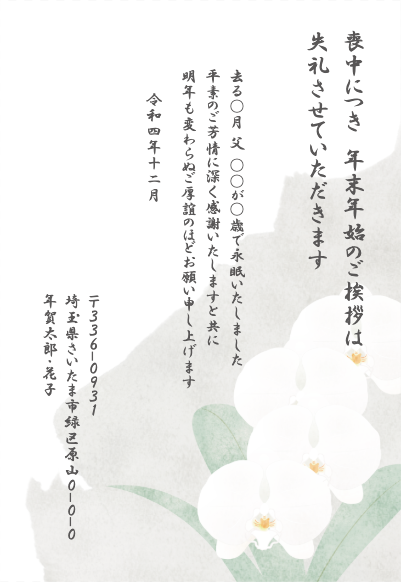 喪中につき 年末年始のご挨拶は
失礼させていただきます
去る〇月 父 〇〇が〇歳で永眠いたしました
平素のご芳情に深く感謝いたしますと共に
明年も変わらぬご厚誼のほどお願い申し上げます
令和四年十二月
〒336-0931
埼玉県さいたま市緑区原山0-0-0
年賀太郎・花子